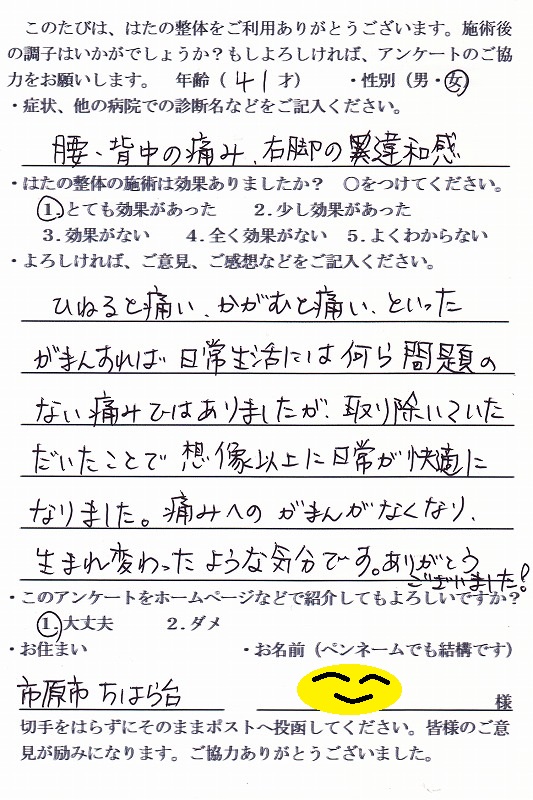 このたびは、はたの整体をご利用ありがとうございます。施術後
の調子はいかがでしょうか？もしよろしければ、アンケートのご協
力をお願いします。　年齢（41才）　・性別（男・女）
・症状、他の病院での診断名などをご記入ください。
腰、背中の痛み、右脚の異違和感
・はたの整体の施術は効果ありましたか？　〇をつけてください。
1.とても効果があった　2.少し効果があった
3.効果がない　4.全く効果がない　5.よくわからない
・よろしければ、ご意見、ご感想などをご記入ください。
ひねると痛い、かがむと痛い、といった
がまんすれば日常生活には何ら問題の
ない痛みではありましたが、取り除いていた
だいたことで想像以上に日常が快適に
なりました。痛みへのがまんがなくなり、
生まれ変わったような気分です。ありがとう
ございました！
・このアンケートをホームページなどで紹介してもよろしいですか？
1.大丈夫　2.ダメ
・お住まい　・お名前（ペンネームでも結構です）
市原市ちはら台　様
切手をはらずにそのままポストへ投函してください。皆様のご意
見が励みになります。ご協力ありがとうございました。